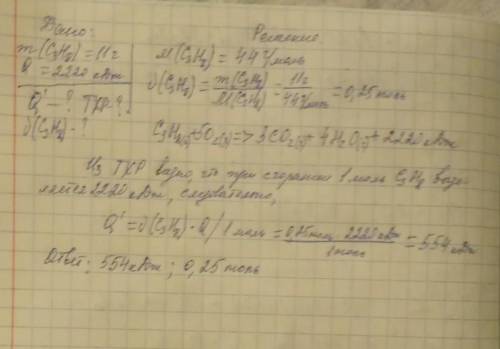 Дано:
Решение
m(C3H8) = 11г
Q = 2220 кДж
Q' - ? ТХР - ?
υ(C3H8) - ?
M(C3H8) = 44 г/моль
υ(C3H8) = m(C3H8)/M(C3H8) = 11г/44г/моль = 0,25 моль
C3H8(г) + 5O2(г) => 3CO2(г) + 4H2O(г) + 2220 кДж
Из ТХР видно, что при сгорании 1 моль C3H8 выде-
ляется 2220 кДж, следовательно,
Q' = υ(C3H8) · Q / 1 моль = 0,25 моль · 2220 кДж / 1 моль = 554 кДж
Ответ: 554 кДж ; 0,25 моль